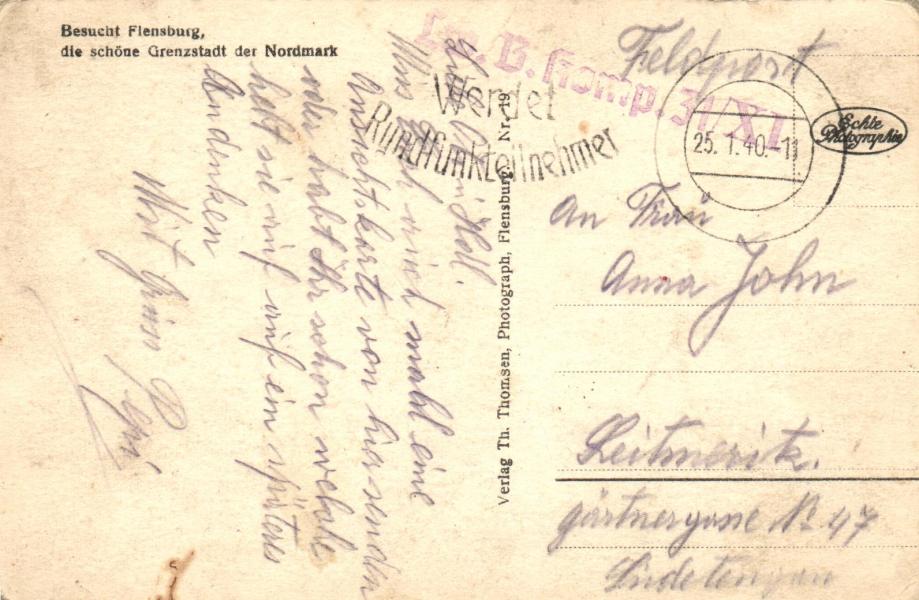 Besucht Flensburg,
die schöne Grenzstadt der Nordmark
B. Komp. 31/XI
Feldpost
Werdet
Rundfunkteilnehmer
25.1.40.-11
Echte
Photographie
Verlag Th. Thomsen, Photograph, Flensburg. Nr. 19
An Frau
Anna John
Leitmeritz.
gärtnergasse № 47
Muss Euch mahl eine
Ansichtskarte von hir senden
oder habt Ihr schon welche
hebt sie auf auf ein späteres
Andenken
Mit